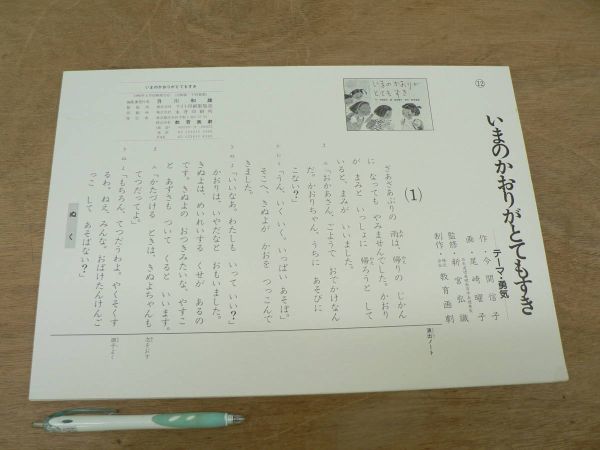 ⑫
いまのかおりがとてもすき
―テーマ・勇気―
作・今関信子
画・尾崎曜子
監修・新宮弘識
制作・教育画劇
いまのかおりが
とてもすき
演出ノート
(1)
ざあざあぶりの 雨は、帰りの じかん
に なっても やみませんでした。かおり
が まみと いっしょに 帰ろうと して
いると、まみが いいました。
「おかあさん、ごようで おでかけなん
だ。かおりちゃん、うちに あそびに
こない？」
「うん、いく、いく。いっぱい あそぼ。」
そこへ、きぬよが かおを つっこんで
きました。
「いいなあ。わたしも いって いい？」
かおりは、いやだなと おもいました。
きぬよは、めいれいする くせが あるの
です。きぬよの おつきみたいな、やすこ
と あずさも ついて くると いいます。
「かたづける ときは、きぬよちゃんも
てつだってよ。」
「もちろん、てつだうわよ。やくそくす
るわ。ねえ、みんな、おばけたんけんご
っこ して あそばない？」
念をおす
調子よく
ぬく
いまのかおりがとてもすき
教育画劇